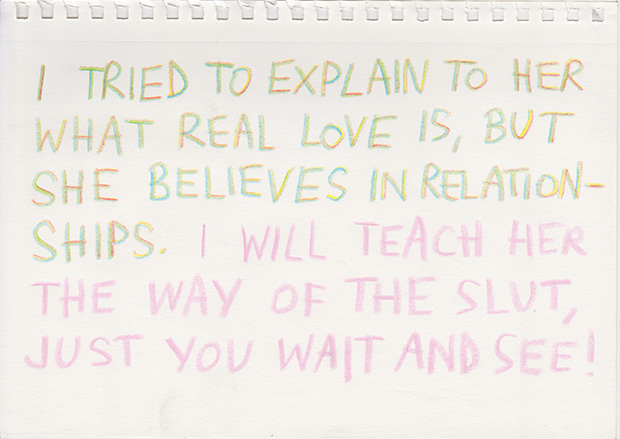 I TRIED TO EXPLAIN TO HER
WHAT REAL LOVE IS, BUT
SHE BELIEVES IN RELATION-
SHIPS. I WILL TEACH HER
THE WAY OF THE SLUT,
JUST YOU WAIT AND SEE!